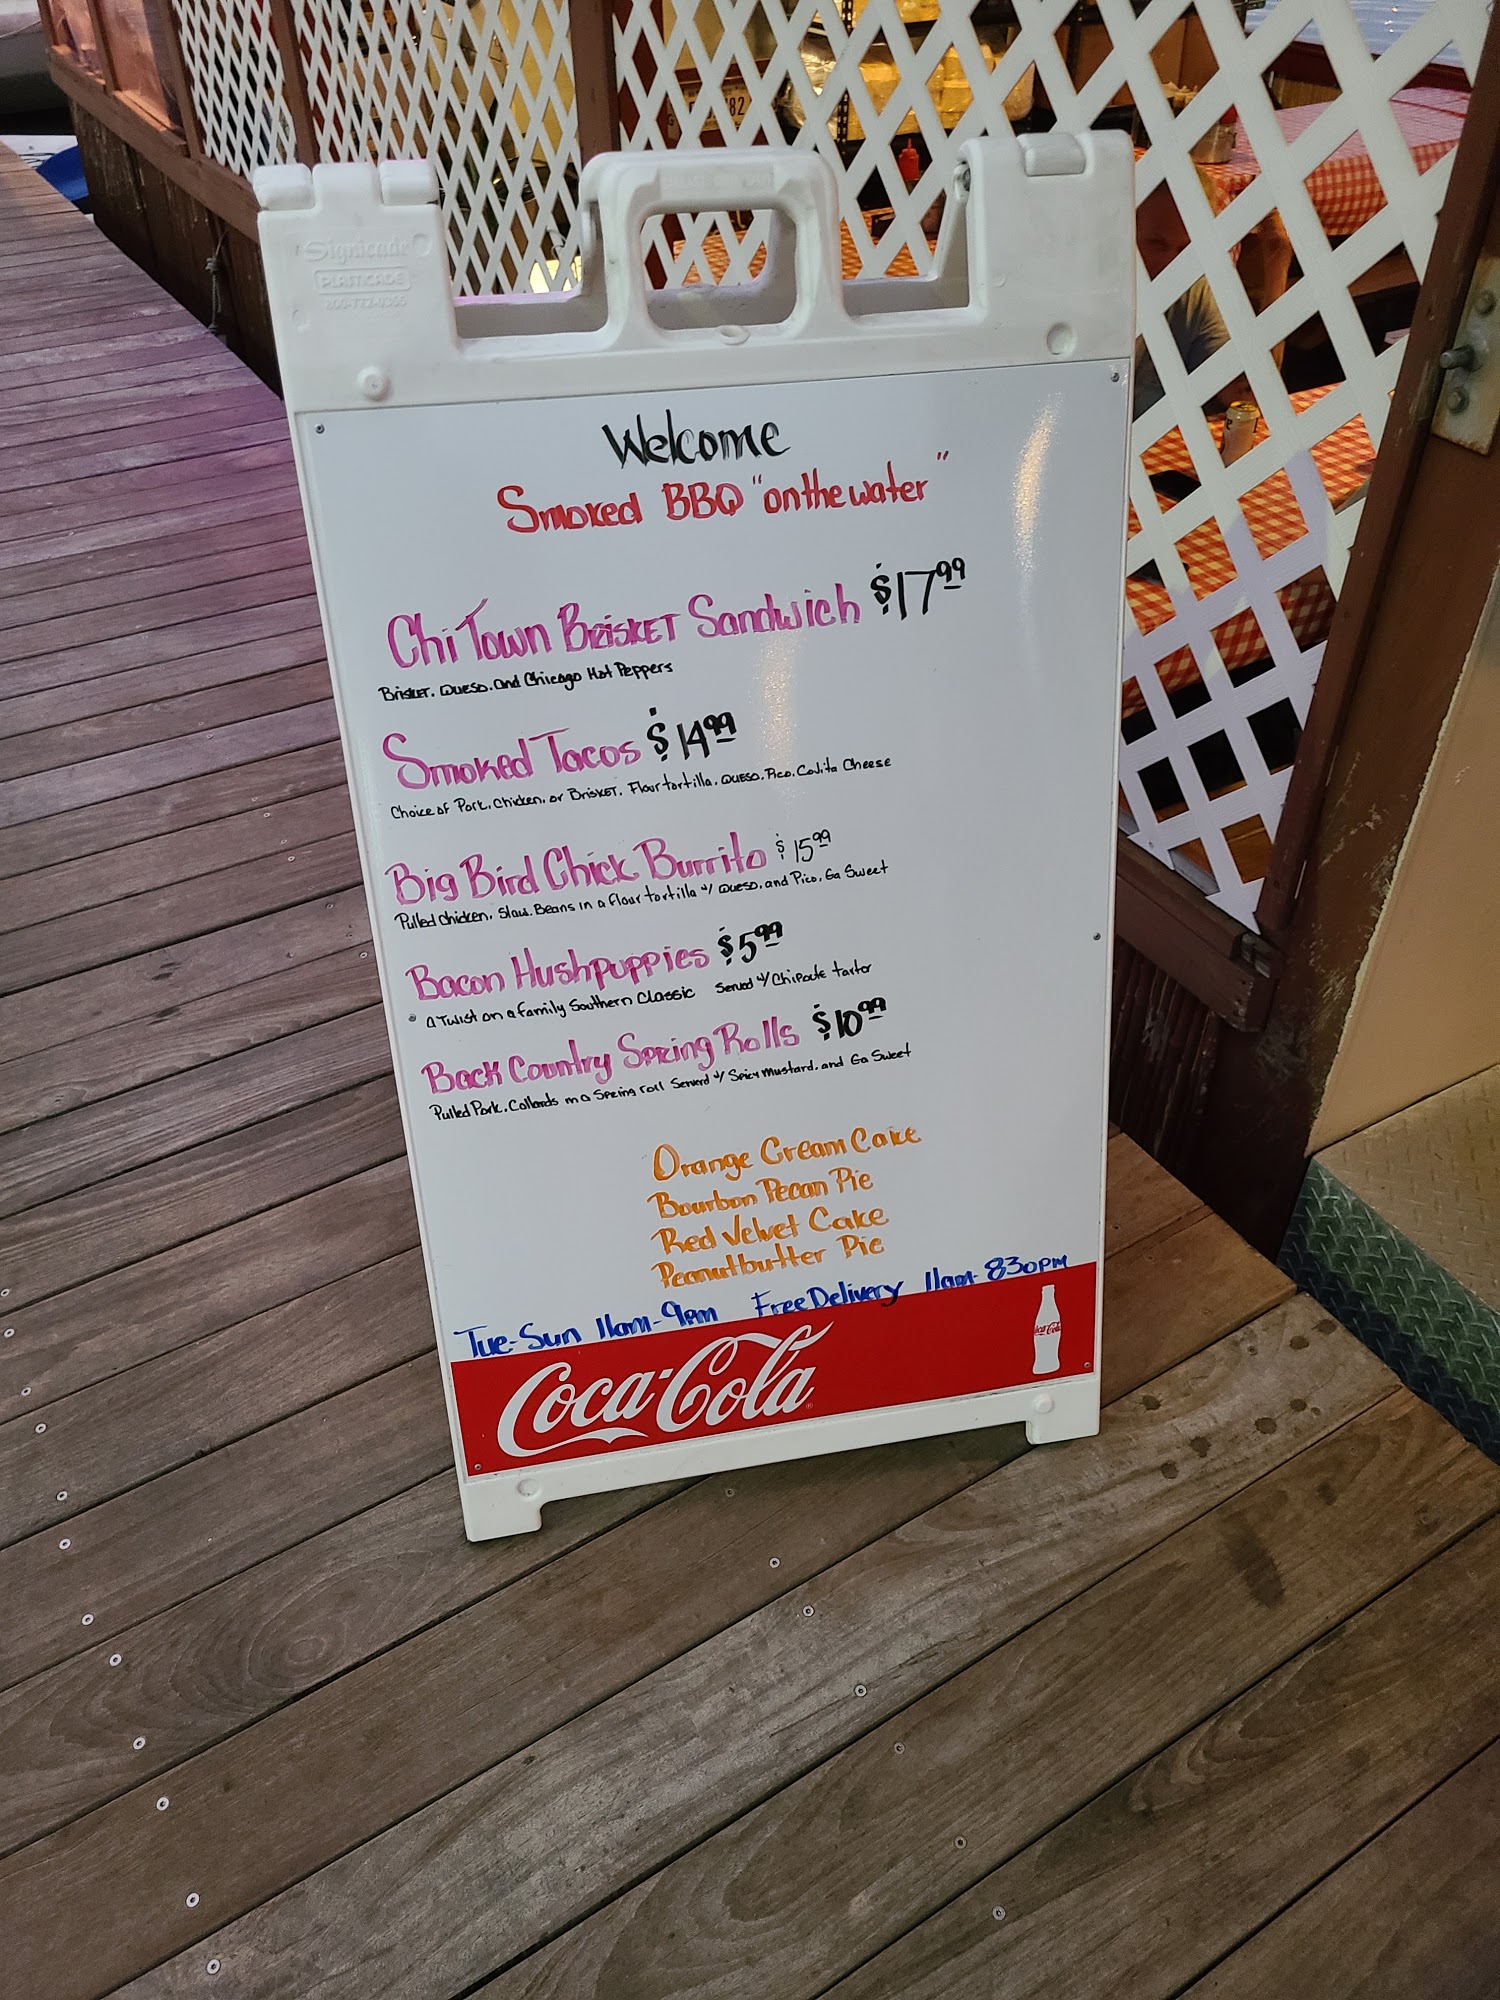 Signicade
PLASTICADE
800-772-0355
82
Welcome
Smoked BBQ "on the water"
Chi Town Brisket Sandwich $17.99
Brisket, Queso, and Chicago Hot Peppers
Smoked Tacos $14.99
Choice of Pork, Chicken, or Brisket, Flour tortilla, Queso, Pico, Cojita Cheese
Big Bird Chick Burrito $15.99
Pulled Chicken, Slaw, Beans in a flour tortilla w/ Queso, and Pico, Ga Sweet
Bacon Hushpuppies $5.99
a Twist on a family Southern Classic Served w/ Chipoute tartar
Back Country Spring Rolls $10.99
Pulled Pork, Collards in a Spring roll Served w/ Spicy Mustard, and Ga Sweet
Orange Cream Cake
Bourbon Pecan Pie
Red Velvet Cake
Peanutbutter Pie
Tue-Sun 11am-9pm Free Delivery 11am-830pm
Coca-Cola
Coca-Cola